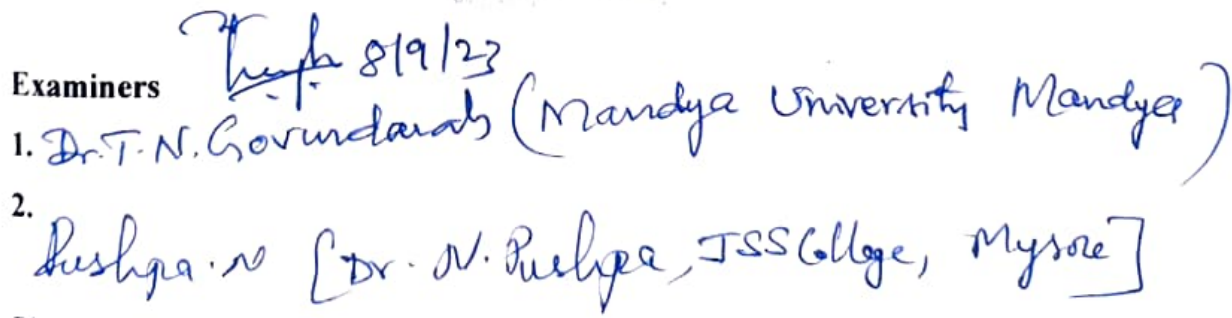 8/9/23
Examiners
1. Dr. T. N. Govindaraju (Mandya University Mandya)
2.
Pushpa. N [Dr. N. Pushpa, JSS College, Mysore]